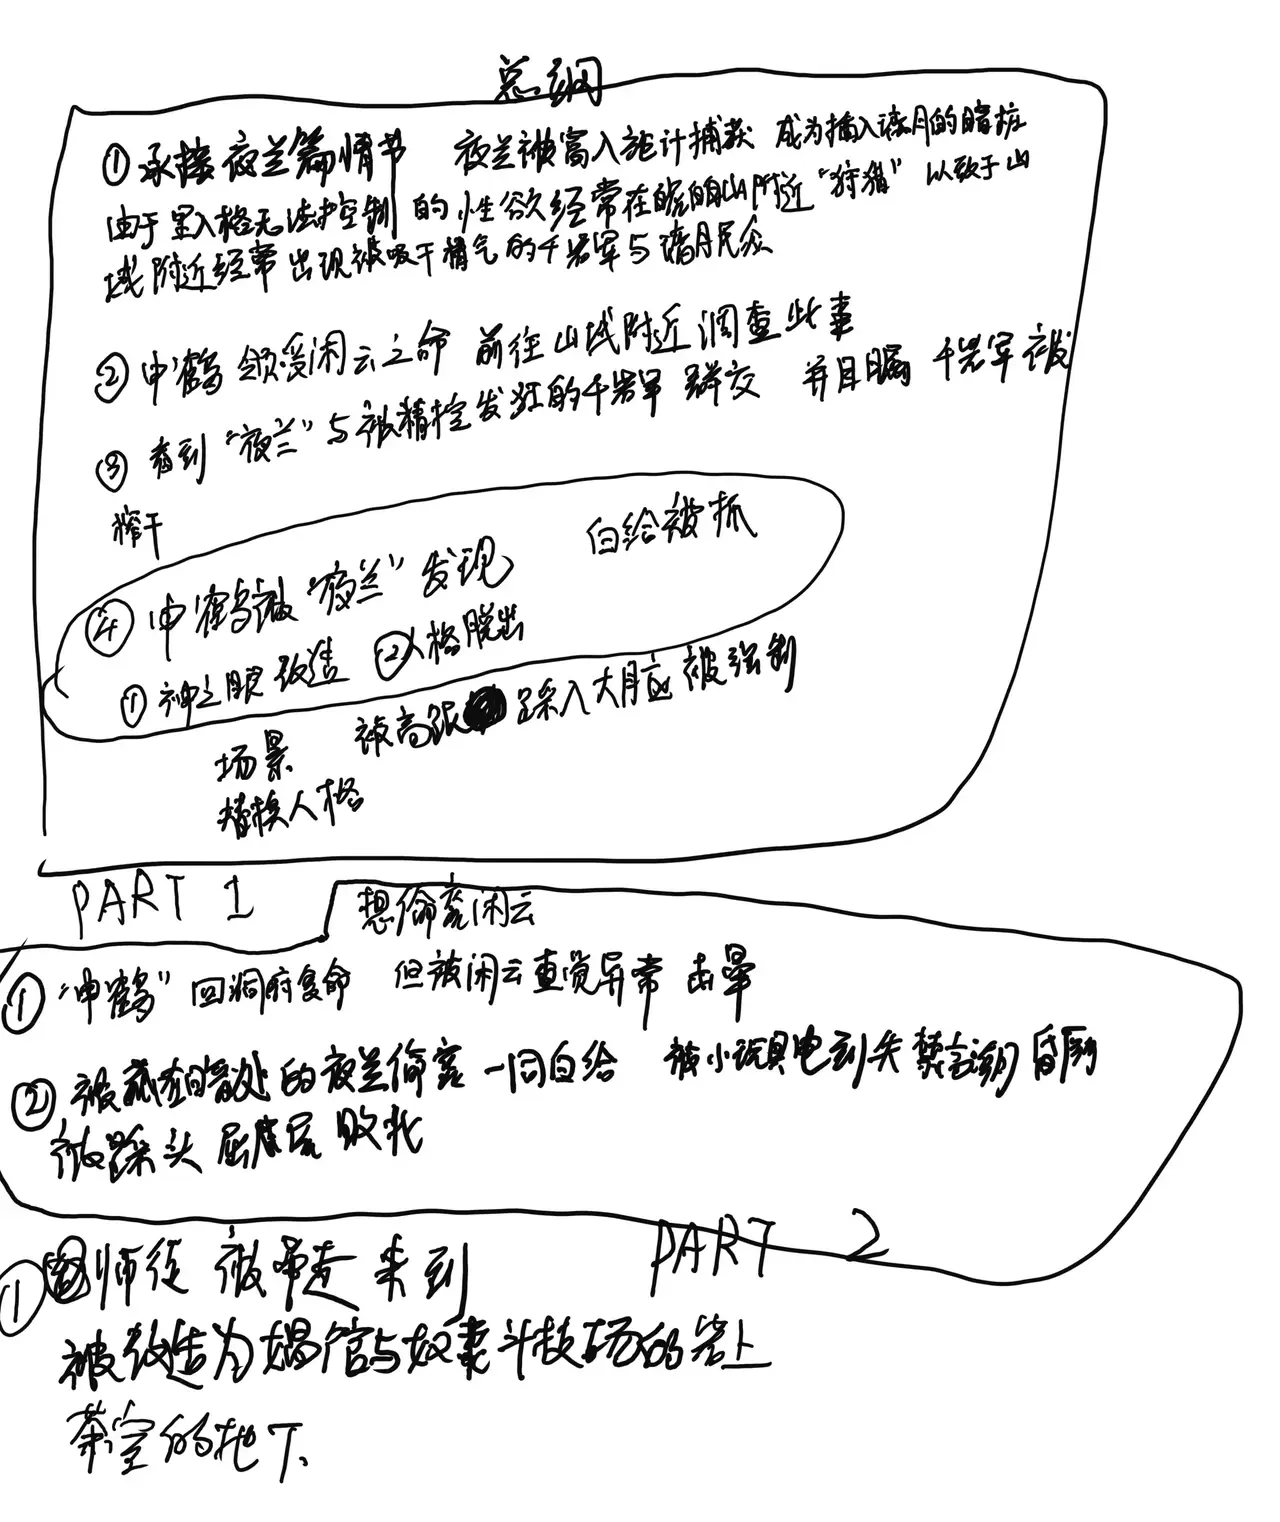 总纲
① 承接夜兰篇情节 夜兰被富人施计捕获 成为插入璃月的暗桩
由于 里人格无法控制 的性欲经常在 附近“狩猎” 以致于山
域附近经常出现被吸干精气的千岩军与璃月民众
② 申鹤 领受闲云之命 前往山域附近调查此事
③ 看到“夜兰”与被精控发狂的千岩军 群交 并目瞩 千岩军被
榨干
④ 申鹤被“夜兰”发现 白给被抓
① 神之眼改造 ②人格脱出
场景 被高跟 踩入大 被强制
替换人格
PART 1 想偷袭闲云
① “申鹤”回洞府复命 但被闲云查觉异常 击晕
② 被藏在暗处的夜兰偷袭 一同白给 被小玩具电到失禁 昏厥
被踩头 屈 败北
PART 2
① 师徒 被带走 来到
被改造为娼馆与奴妻斗技场的岩上
茶室的地下